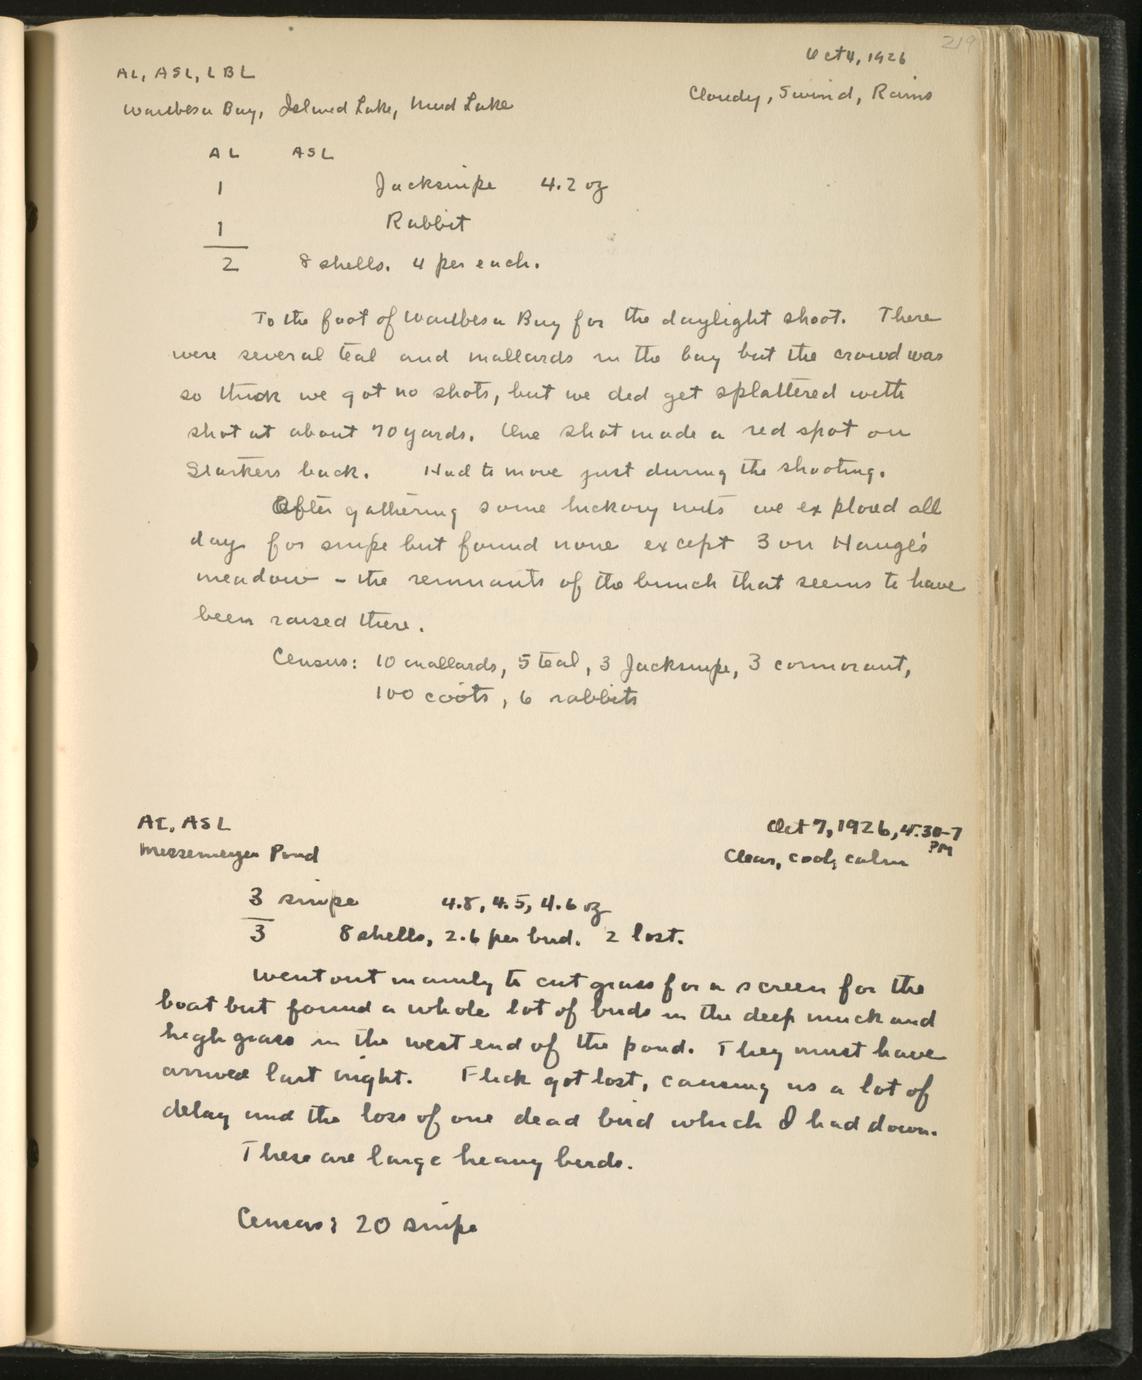 219
Oct 4, 1926
AL, ASL, LBL
Cloudy, S wind, Rains
Waubesa Bay, Island Lake, Mud Lake
AL ASL
1 Jacksnipe 4.2 oz
1 Rabbit
2 8 shells. 4 per each.
To the foot of Waubesa Bay for the daylight shoot. There
were several teal and mallards in the bay but the crowd was
so thick we got no shots, but we did get splattered with
shot at about 70 yards. One shot made a red spot on
Starkers back. Had to move just during the shooting.
After gathering some hickory nuts we explored all
day for snipe but found none except 3 on Hauge's
meadow - the remnants of the bunch that seems to have
been raised there.
Census: 10 mallards, 5 teal, 3 Jacksnipe, 3 cormorant,
100 coots, 6 rabbits
AL, ASL
Oct 7, 1926, 4:30-7
PM
Messemeyer Pond
Clear, cool, calm
3 snipe 4.8, 4.5, 4.6 oz
3 8 shells, 2.6 per bird. 2 lost.
Went out mainly to cut grass for a screen for the
boat but found a whole lot of birds in the deep muck and
high grass in the west end of the pond. They must have
arrived last night. Flick got lost, causing us a lot of
delay and the loss of one dead bird which I had down.
These are large heavy birds.
Census: 20 snipe